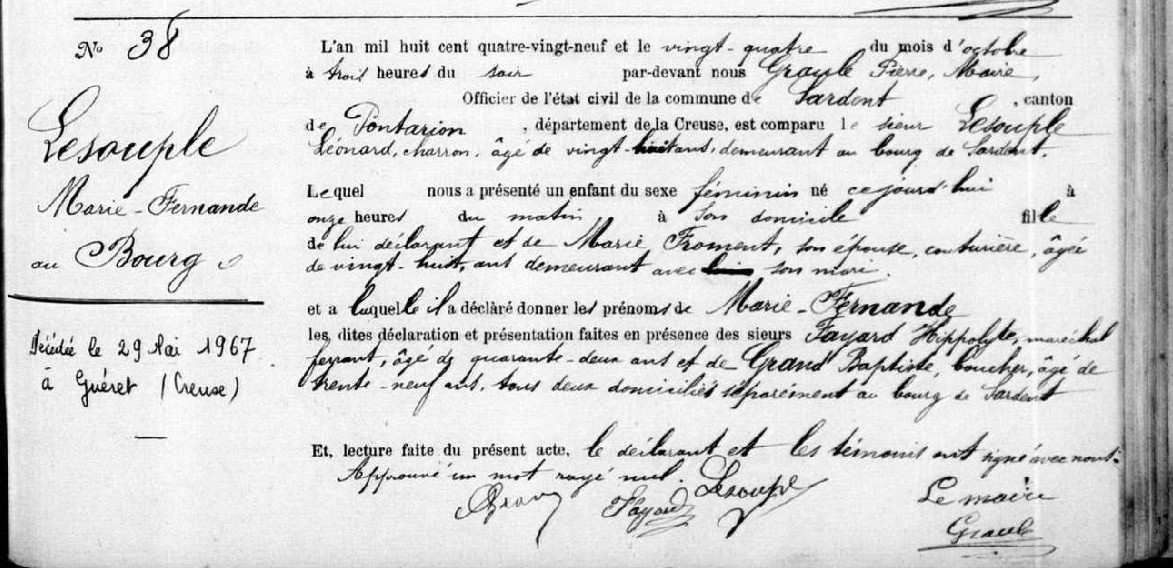 No 38
Lesouple
Marie-Fernande
au Bourg
Décédée le 29 Mai 1967
à Guéret (Creuse)
L'an mil huit cent quatre-vingt-neuf et le vingt-quatre du mois d'octobre
à trois heures du soir par-devant nous Graule Pierre, Maire,
Officier de l'état civil de la commune de Sardent, canton
de Pontarion, département de la Creuse, est comparu le sieur Lesouple
Léonard, charron, âgé de vingt-huit ans, demeurant au bourg de Sardent.
Lequel nous a présenté un enfant du sexe féminin né cejourd'hui à
onze heures du matin à son domicile fille
de lui déclarant et de Marie Froment, son épouse, couturière, âgée
de vingt-huit, ans demeurant avec son mari.
et a laquelle il a déclaré donner les prénoms de Marie-Fernande
les, dites déclaration et présentation faites en présence des sieurs Fayard Hippolyte, maréchal
ferrant, âgé de quarante-deux ans et de Grand Baptiste, boucher, âgé de
trente-neuf ans, tous deux domiciliés séparément au bourg de Sardent
Et, lecture faite du présent acte, le déclarant et les témoins ont signé avec nous.
Approuvé un mot rayé nul. Lesouple
Fayard
Le maire
Graule